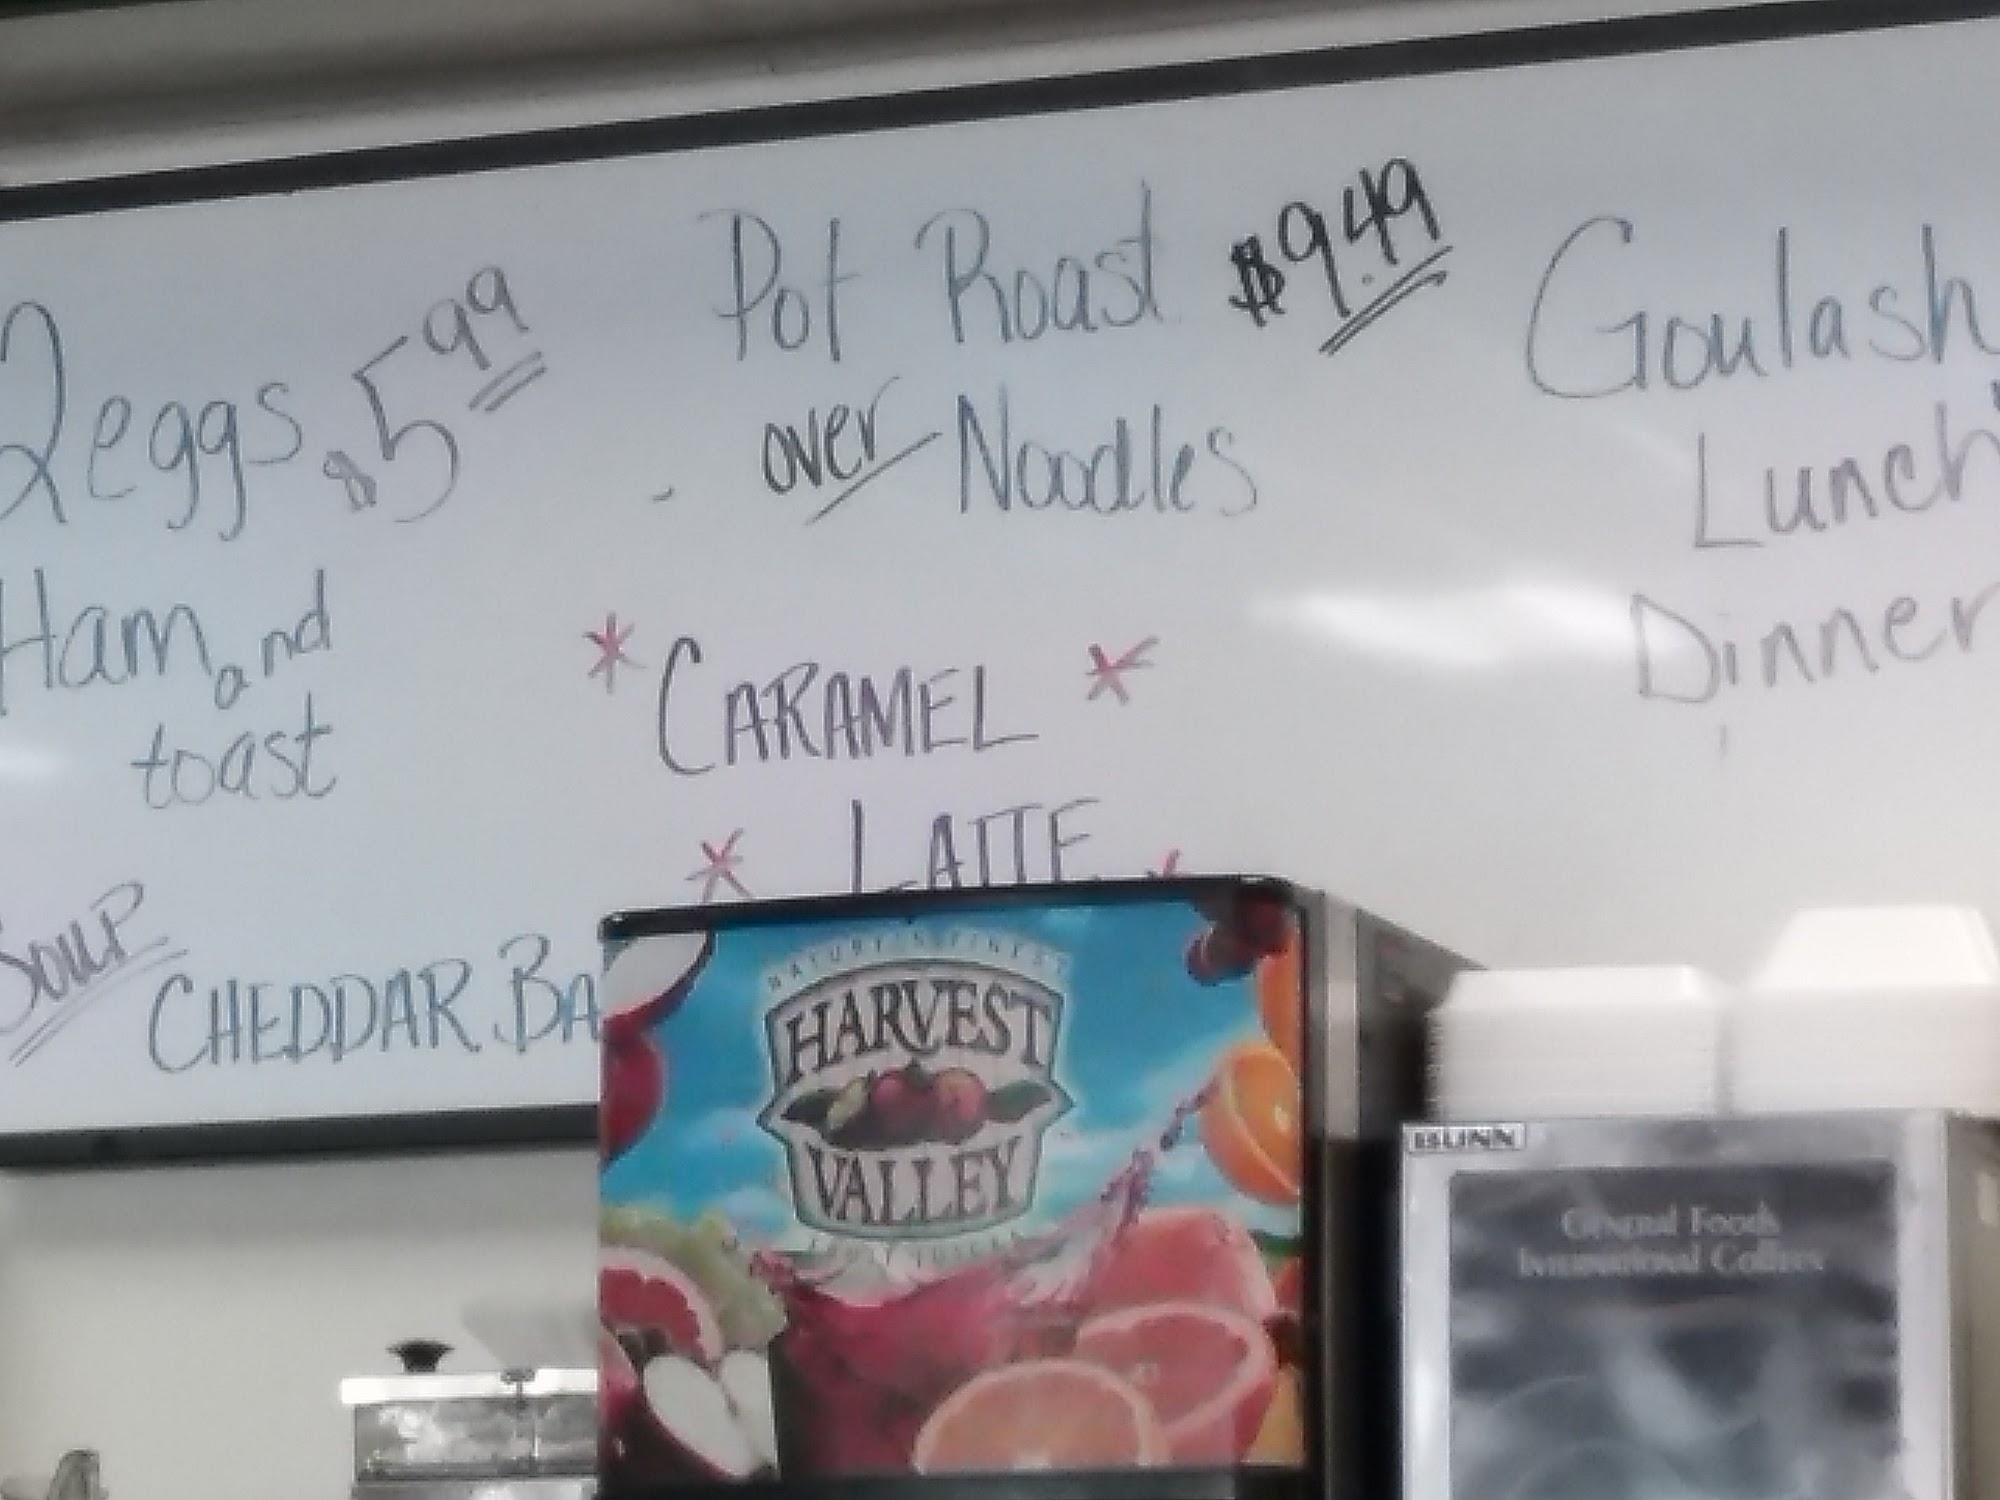 2 eggs $5.99
Ham and
toast
Soup
CHEDDAR. BA
Pot Roast $9.49
over Noodles
* CARAMEL *
* LATTE *
Goulash
Lunch
Dinner
NATURE'S FINEST
HARVEST
VALLEY
FRUIT JUICES
BUNN
General Foods
International Coffees